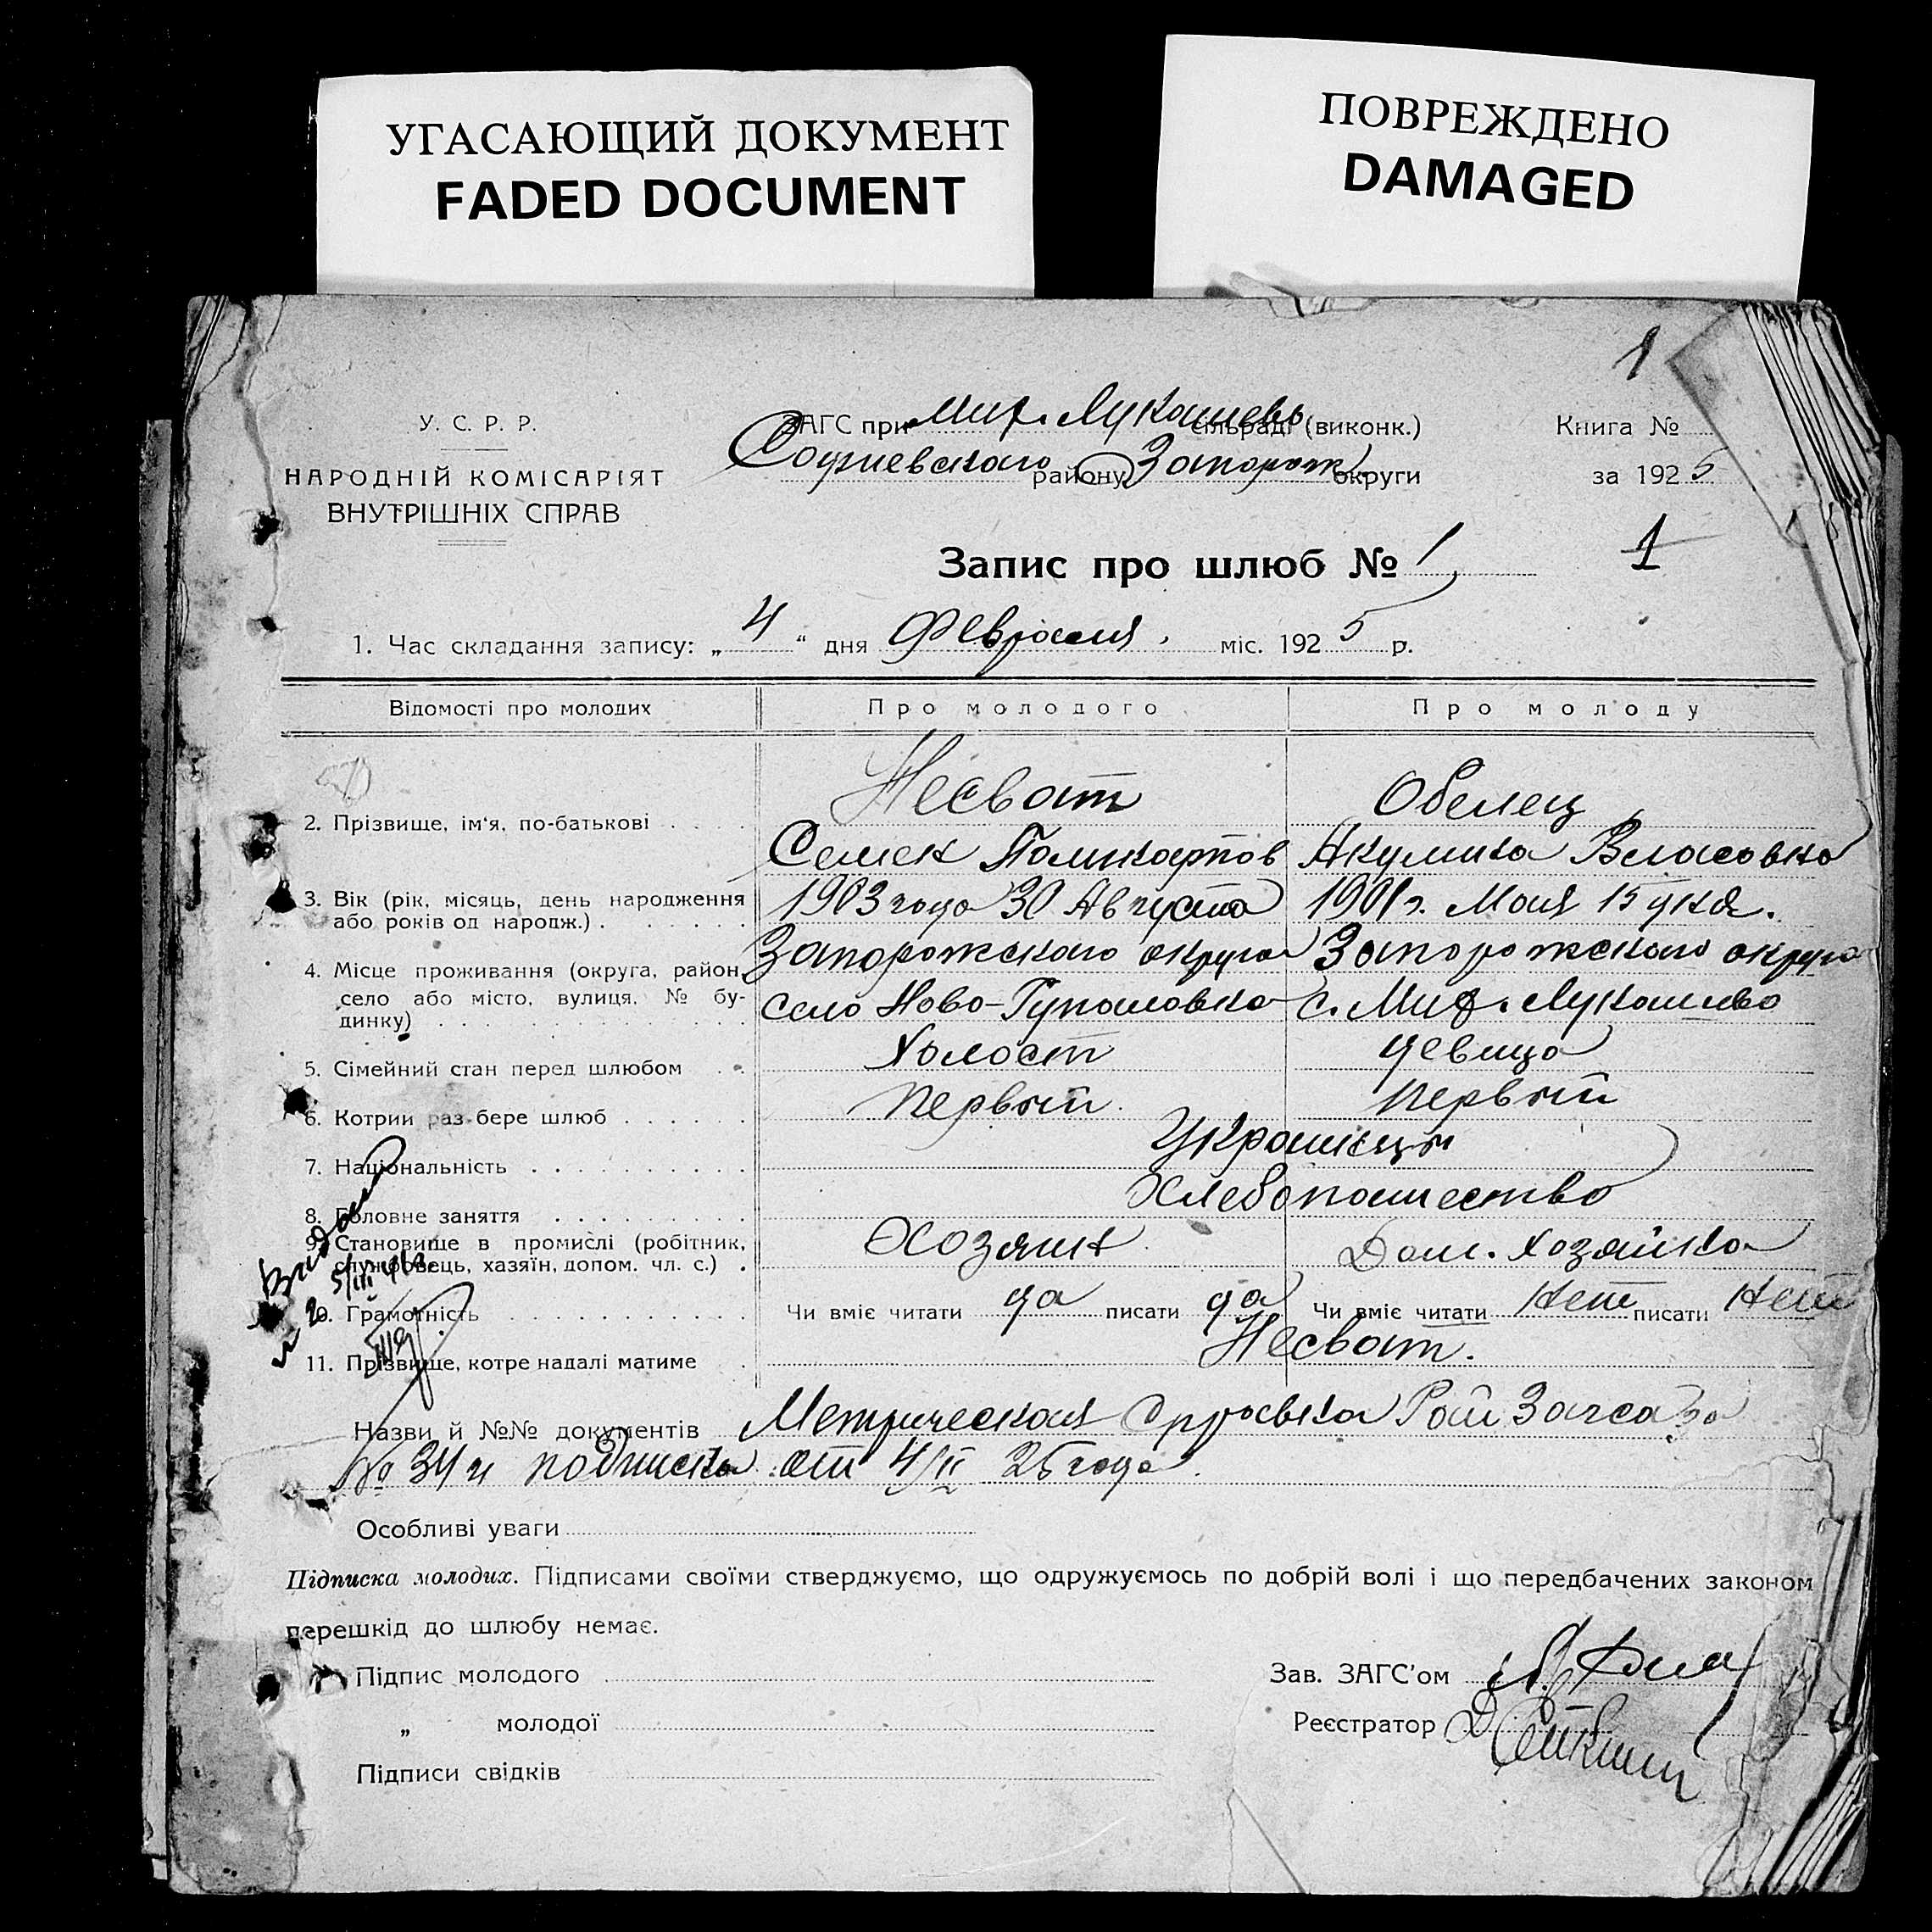 УГАСАЮЩИЙ ДОКУМЕНТ
FADED DOCUMENT
ПОВРЕЖДЕНО
DAMAGED
1
У. С. Р. Р.
НАРОДНІЙ КОМІСАРІЯТ
ВНУТРІШНІХ СПРАВ
ЗАГС при Миф. Лукашево сільраді (виконк.)
Софиевского району Запорож. округи
Книга №
за 1925
Запис про шлюб № 1
1
1. Час складання запису: „ 4 “ дня Февраля міс. 1925 р.
Відомості про молодих Про молодого Про молоду
Несват Обелец
2. Прізвище, ім'я, по-батькові
Семен Поликарпов Акулина Власовна
3. Вік (рік, місяць, день народження або років од народж.)
1903 года 30 Августа 1901 г. Мая 15 дня.
4. Місце проживання (округа, район, село або місто, вулиця, № будинку)
Запорожского округа Запорожского округа
село Ново-Гупаловка с. Миф. Лукашево
5. Сімейний стан перед шлюбом Холост девица
6. Котрий раз бере шлюб Первый Первый
7. Національність Украинцы
8. Головне заняття Хлебопашество
9. Становище в промислі (робітник, службовець, хазяїн, допом. чл. с.) Хозяин Дом. хозяйка
10. Грамотність Чи вміє читати да писати да Чи вміє читати нет писати нет
11. Прізвище, котре надалі матиме Несват.
Назви й №№ документів Метрическая справка Рай Загса за
№ 34 и подписка от 4/II 25 года.
Особливі уваги
Підписка молодих. Підписами своїми стверджуємо, що одружуємось по добрій волі і що передбачених законом
перешкід до шлюбу немає.
Підпис молодого
„ молодої
Підписи свідків
Зав. ЗАГС'ом
Реєстратор